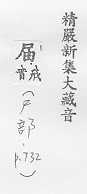 精嚴新集大藏音
届
音戒
(尸部,
p.732)